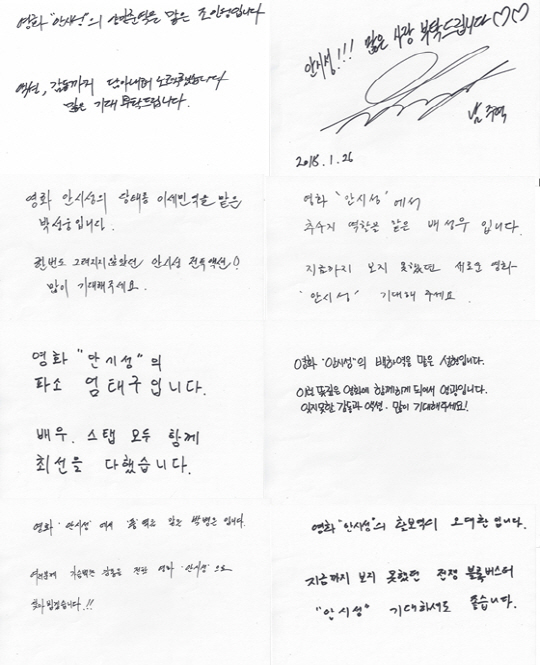 영화 "안시성"의 양만춘역을 맡은 조인성입니다
액션, 감동까지 담아내려 노력했습니다
많은 기대 부탁드립니다.
안시성!!! 많은 사랑 부탁드립니다♡♡
남주혁
2018.1.26
영화 안시성의 당태종 이세민역을 맡은
박성웅입니다.
한번도 그려지지 않았던 안시성 전투액션!
많이 기대해주세요.
영화 '안시성'에서
추수지 역할을 맡은 배성우입니다.
지금까지 보지 못했던 새로운 영화
'안시성' 기대해 주세요
영화 "안시성"의
파소 엄태구입니다.
배우, 스탭 모두 함께
최선을 다했습니다.
영화 "안시성"의 백하역을 맡은 설현입니다.
이번 뜻깊은 영화에 함께하게 되어서 영광입니다.
잊지못할 감동과 액션. 많이 기대해주세요!
영화 '안시성'에서 '풍'역을 맡은 박병은입니다.
여러분께 가슴벅찬 감동을 전할 영화 '안시성'으로
찾아뵙겠습니다.!!
영화 "안시성"의 활보역의 오대환입니다.
지금까지 보지 못했던 전쟁 블록버스터
"안시성" 기대하셔도 좋습니다.